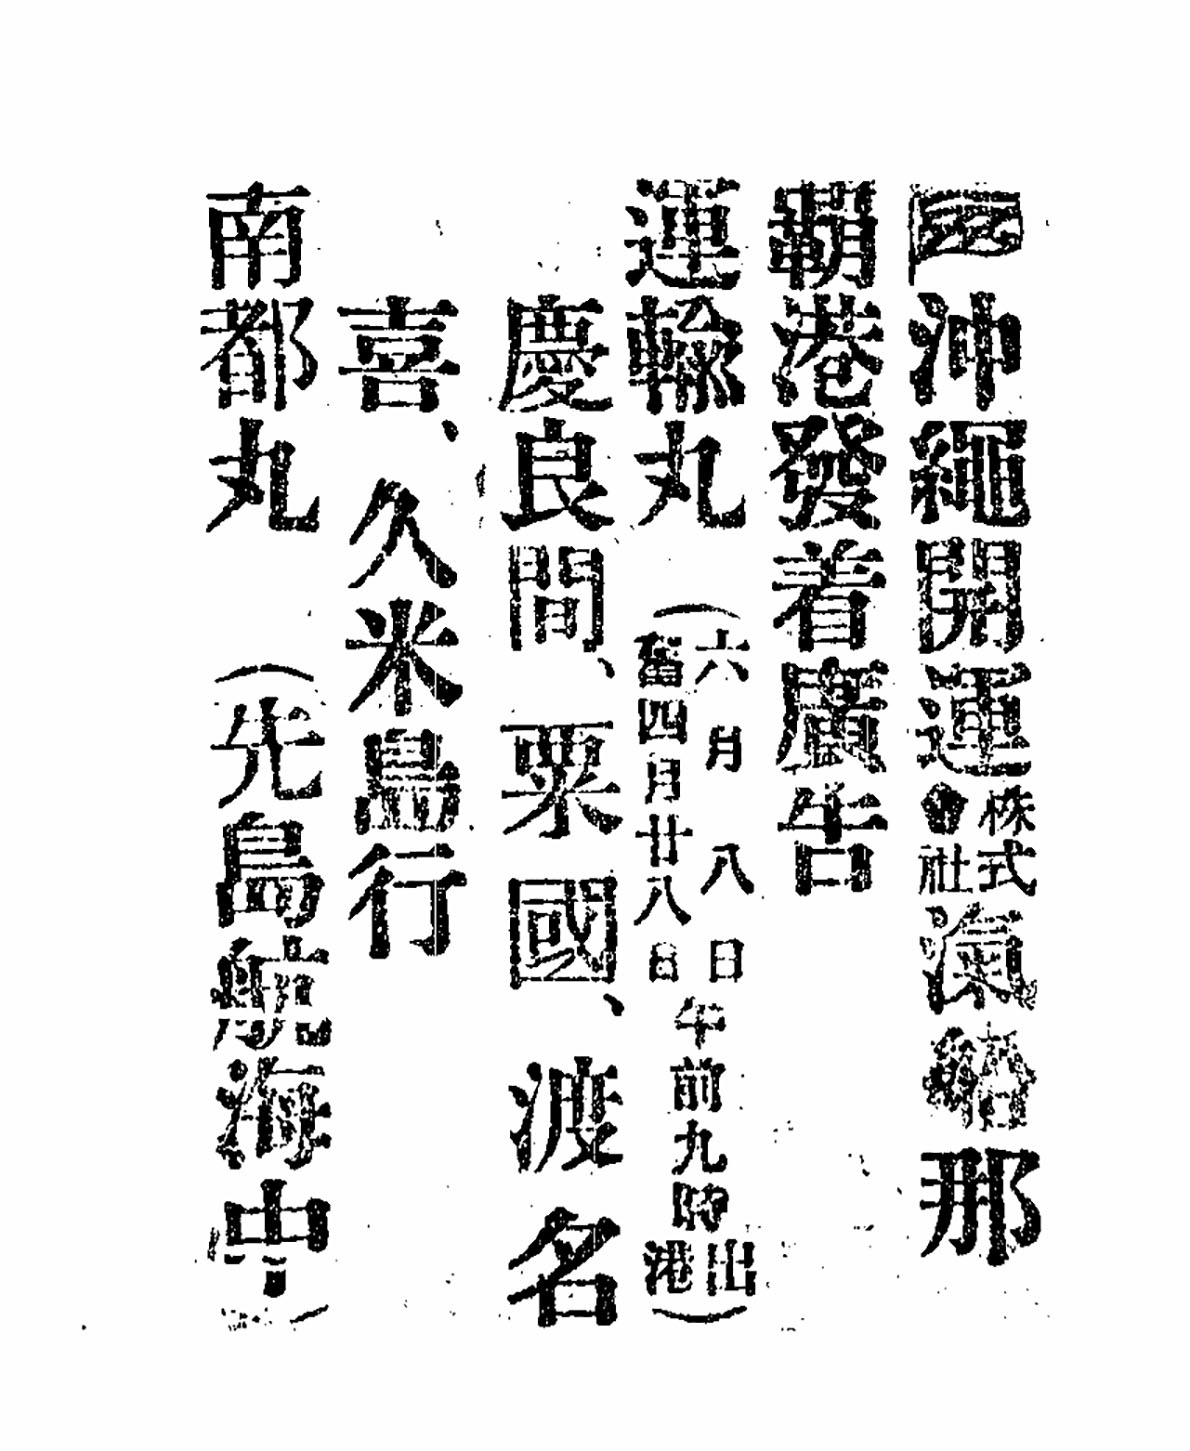 沖繩開運株式會社滊船那
覇港發着廣告
運輸丸（六月八日舊四月廿八日午前九時出港）
慶良間、粟國、渡名
喜、久米島行
南都丸（先島航海中）